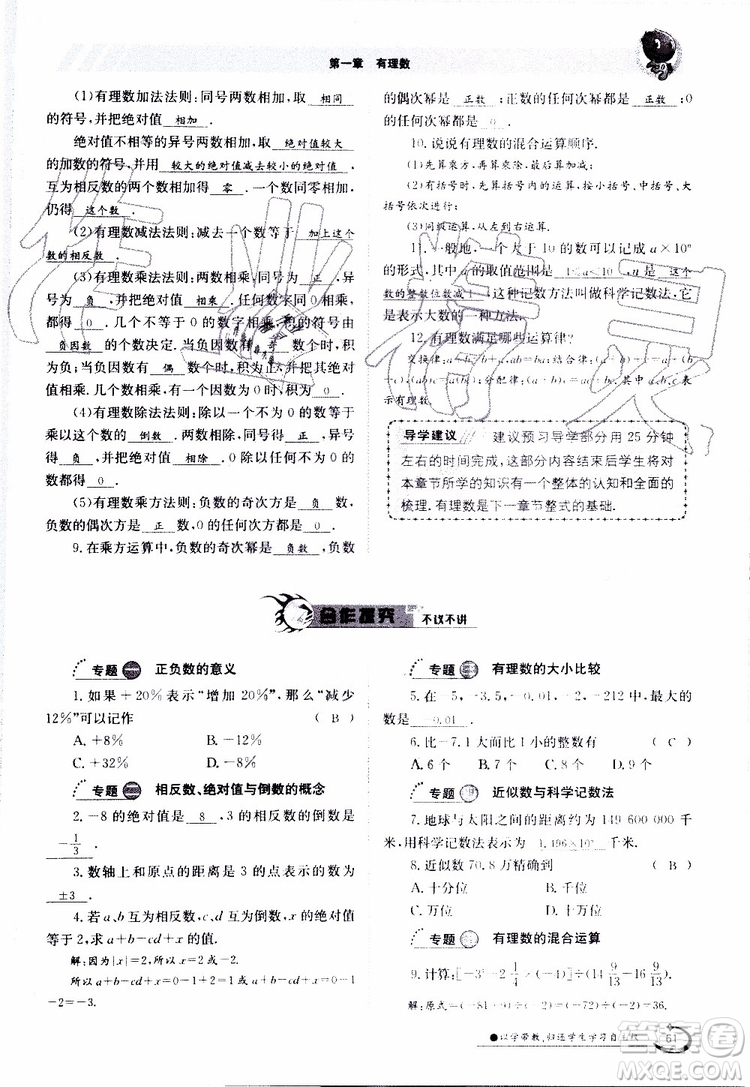 第一章 有理数
(1)有理数加法法则:同号两数相加,取 相同
的符号,并把绝对值 相加.
绝对值不相等的异号两数相加,取 绝对值较大
的加数的符号,并用 较大的绝对值减去较小的绝对值.
互为相反数的两个数相加得 零.一个数同0相加,
仍得 这个数.
(2)有理数减法法则:减去一个数,等于 加上这个
数的相反数.
(3)有理数乘法法则:两数相乘,同号得 正,异号
得 负,并把绝对值 相乘.任何数字同0相乘,
都得 0.几个不等于0的数字相乘,积的符号由
负因数 的个数决定.当负因数有 奇
数个数时,积为负.当负因数有 偶
(4)有理数除法法则:除以一个不为0的数等于
乘以这个数的 倒数.两数相除,同号得 正,异号
得 负,并把绝对值 相除.0除以任何一个不等于0
的数,都得 0.
(5)有理数乘方法则:负数的奇次方是 负数,
负数的偶次方是 正数,0的任何次方是 0.
9.在乘方运算中,负数的奇次幂是 负数,负数
的偶次幂是 正数;正数的任何次幂是 正数;0
的任何次幂是 0.
10.说说有理数的混合运算顺序.
(1)先乘方,再乘除,最后加减;
(2)有括号时,先算括号内的运算,按小括号、中括号、大括
号依次进行;
(3)同级运算,从左到右进行.
11.一般地,一个大于10的数可以记成a×10ⁿ
的形式,其中a的取值范围是 1≤a<10,n是 这个
数的整数位数减1.这种记数方法叫做科学记数法,它
是表示大数的一种方法.
12.有理数满足哪些运算律?
导学建议 建议预习导学部分用25分钟
左右的时间完成,这部分内容结束后学生将对
本章节所学的知识有一个整体的认知和全面的
梳理.有理数是下一章节整式的基础.
合作探究 不议不讲
专题一 正负数的意义
1.如果+20%表示“增加20%”,那么“减少
12%”可以记作 ( B )
A.+8% B.-12%
C.+32% D.-8%
专题二 相反数、绝对值与倒数的概念
2.-8的绝对值是 8,3的相反数的倒数是
-1/3.
3.数轴上和原点的距离是3的点表示的数是
±3.
4.若a、b互为相反数,c、d互为倒数,x的绝对值
等于2,求a+b-cd+x的值.
解:因为|x|=2,所以x=±2.
所以a+b-cd+x=0-1+2=1或a+b-cd+x=0-1
-2=-3.
专题三 有理数的大小比较
5.在-5,-3.5,-0.01,-2,-212各数中,最大的
数是 -0.01.
6.比-7.1大,而比1小的整数有 ( C )
A.6个 B.7个 C.8个 D.9个
专题四 近似数与科学记数法
7.地球与太阳之间的距离约为149 600 000千
米,用科学记数法表示为 1.496×10⁸ 千米.
8.近似数70.8万精确到 ( B )
A.十分位 B.千位
C.万位 D.百分位
专题五 有理数的混合运算
解:原式=(-81-2×9/4)÷(-16)
以学带教,归还学生学习自主权
61